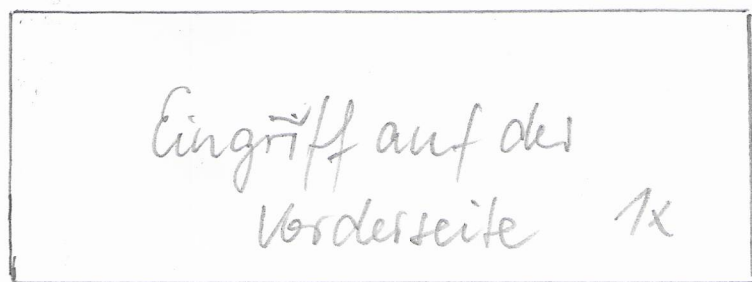 Eingriff auf der
Vorderseite 1x